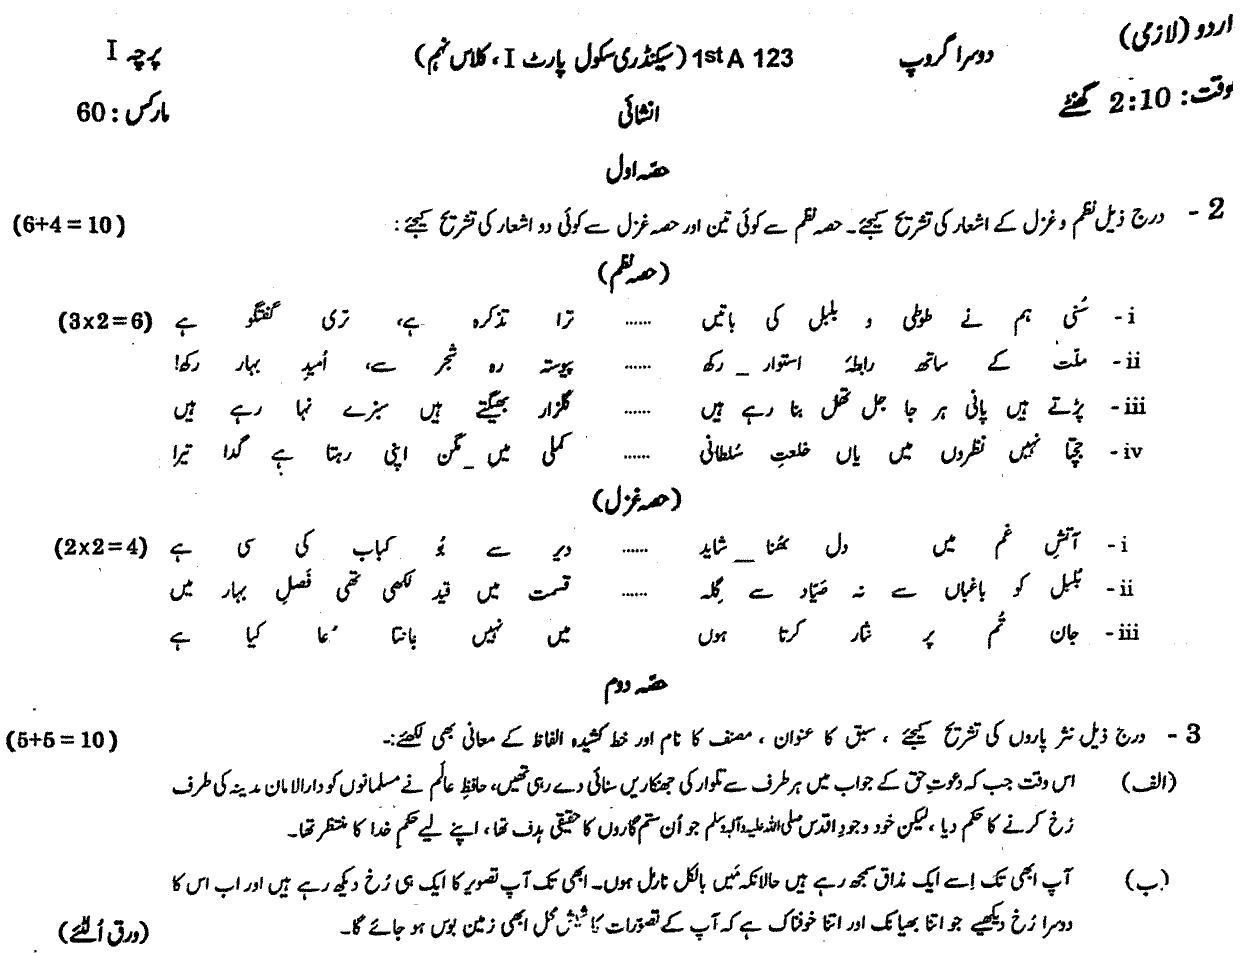 اردو (لازمی) دوسرا گروپ 1stA 123 (سیکنڈری سکول پارٹ I ، کلاس نہم) پرچہ I
وقت: 2:10 گھنٹے انشائی مارکس: 60
حصّہ اول
2 - درج ذیل نظم و غزل کے اشعار کی تشریح کیجئے۔ حصہ نظم سے کوئی تین اور حصہ غزل سے کوئی دو اشعار کی تشریح کیجئے: (6+4=10)
(حصہ نظم)
i- سُنی ہم نے طوطی و بلبل کی باتیں ...... ترا تذکرہ ہے، تری گفتگو ہے (3x2=6)
ii- ملّت کے ساتھ رابطۂ استوار رکھ ...... پیوستہ رہ شجر سے، اُمیدِ بہار رکھ!
iii- پڑتے ہیں پانی ہر جا جل تھل بنا رہے ہیں ...... گلزار بھیگتے ہیں سبزے نہا رہے ہیں
iv- جچتا نہیں نظروں میں یاں خلعتِ سُلطانی ...... کملی میں مگن اپنی رہتا ہے گدا تیرا
(حصہ غزل)
i- آتشِ غم میں دل بھنا شاید ...... دیر سے بُو کباب کی سی ہے (2x2=4)
ii- بُلبل کو باغباں سے نہ صَیّاد سے گِلہ ...... قسمت میں قید لکھی تھی فصلِ بہار میں
iii- جان تُم پر نثار کرتا ہوں میں نہیں جانتا دُعا کیا ہے
حصّہ دوم
3 - درج ذیل نثر پاروں کی تشریح کیجئے ، سبق کا عنوان ، مصنف کا نام اور خط کشیدہ الفاظ کے معانی بھی لکھئے:- (5+5=10)
(الف) اس وقت جب کہ دعوتِ حق کے جواب میں ہر طرف سے تلوار کی جھنکاریں سنائی دے رہی تھیں، حافظِ عالَم نے مسلمانوں کو دارالامان مدینہ کی طرف
رُخ کرنے کا حکم دیا ، لیکن خود وجودِ اقدس صلی اللہ علیہ وآلہ وسلم جو اُن ستم گاروں کا حقیقی ہدف تھا ، اپنے لیے حکمِ خدا کا منتظر تھا۔
(ب) آپ ابھی تک اِسے ایک مذاق سمجھ رہے ہیں حالانکہ مَیں بالکل نارمل ہوں۔ ابھی تک آپ تصویر کا ایک ہی رُخ دیکھ رہے ہیں اور اب اس کا
دوسرا رُخ دیکھیے جو اتنا بھیانک اور اتنا خوفناک ہے کہ آپ کے تصوّرات کا شیش محل ابھی زمین بوس ہو جائے گا۔
(ورق اُلٹئے)